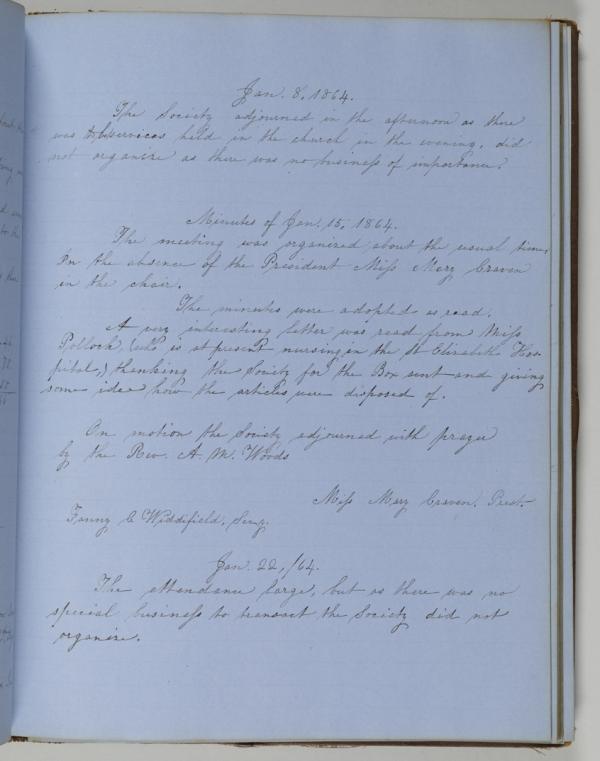 Jan. 8, 1864.
The Society adjourned in the afternoon as there
was to be services held in the church in the evening, did
not organize as there was no business of importance.
Minutes of Jan. 15, 1864.
The meeting was organized about the usual time,
In the absence of the President Miss Mary Craven
in the chair.
The minutes were adopted as read.
A very interesting letter was read from Miss
Pollock, (who is at present nursing in the St Elizabeth Hos-
pital,) thanking the Society for the Box sent and giving
some idea how the articles were disposed of.
On motion the Society adjourned with prayer
by the Rev. A. M. Woods
Miss Mary Craven. Prest.
Fanny C Widdifield. Secy.
Jan. 22, /64.
The attendance large, but as there was no
special business to transact the Society did not
organize.